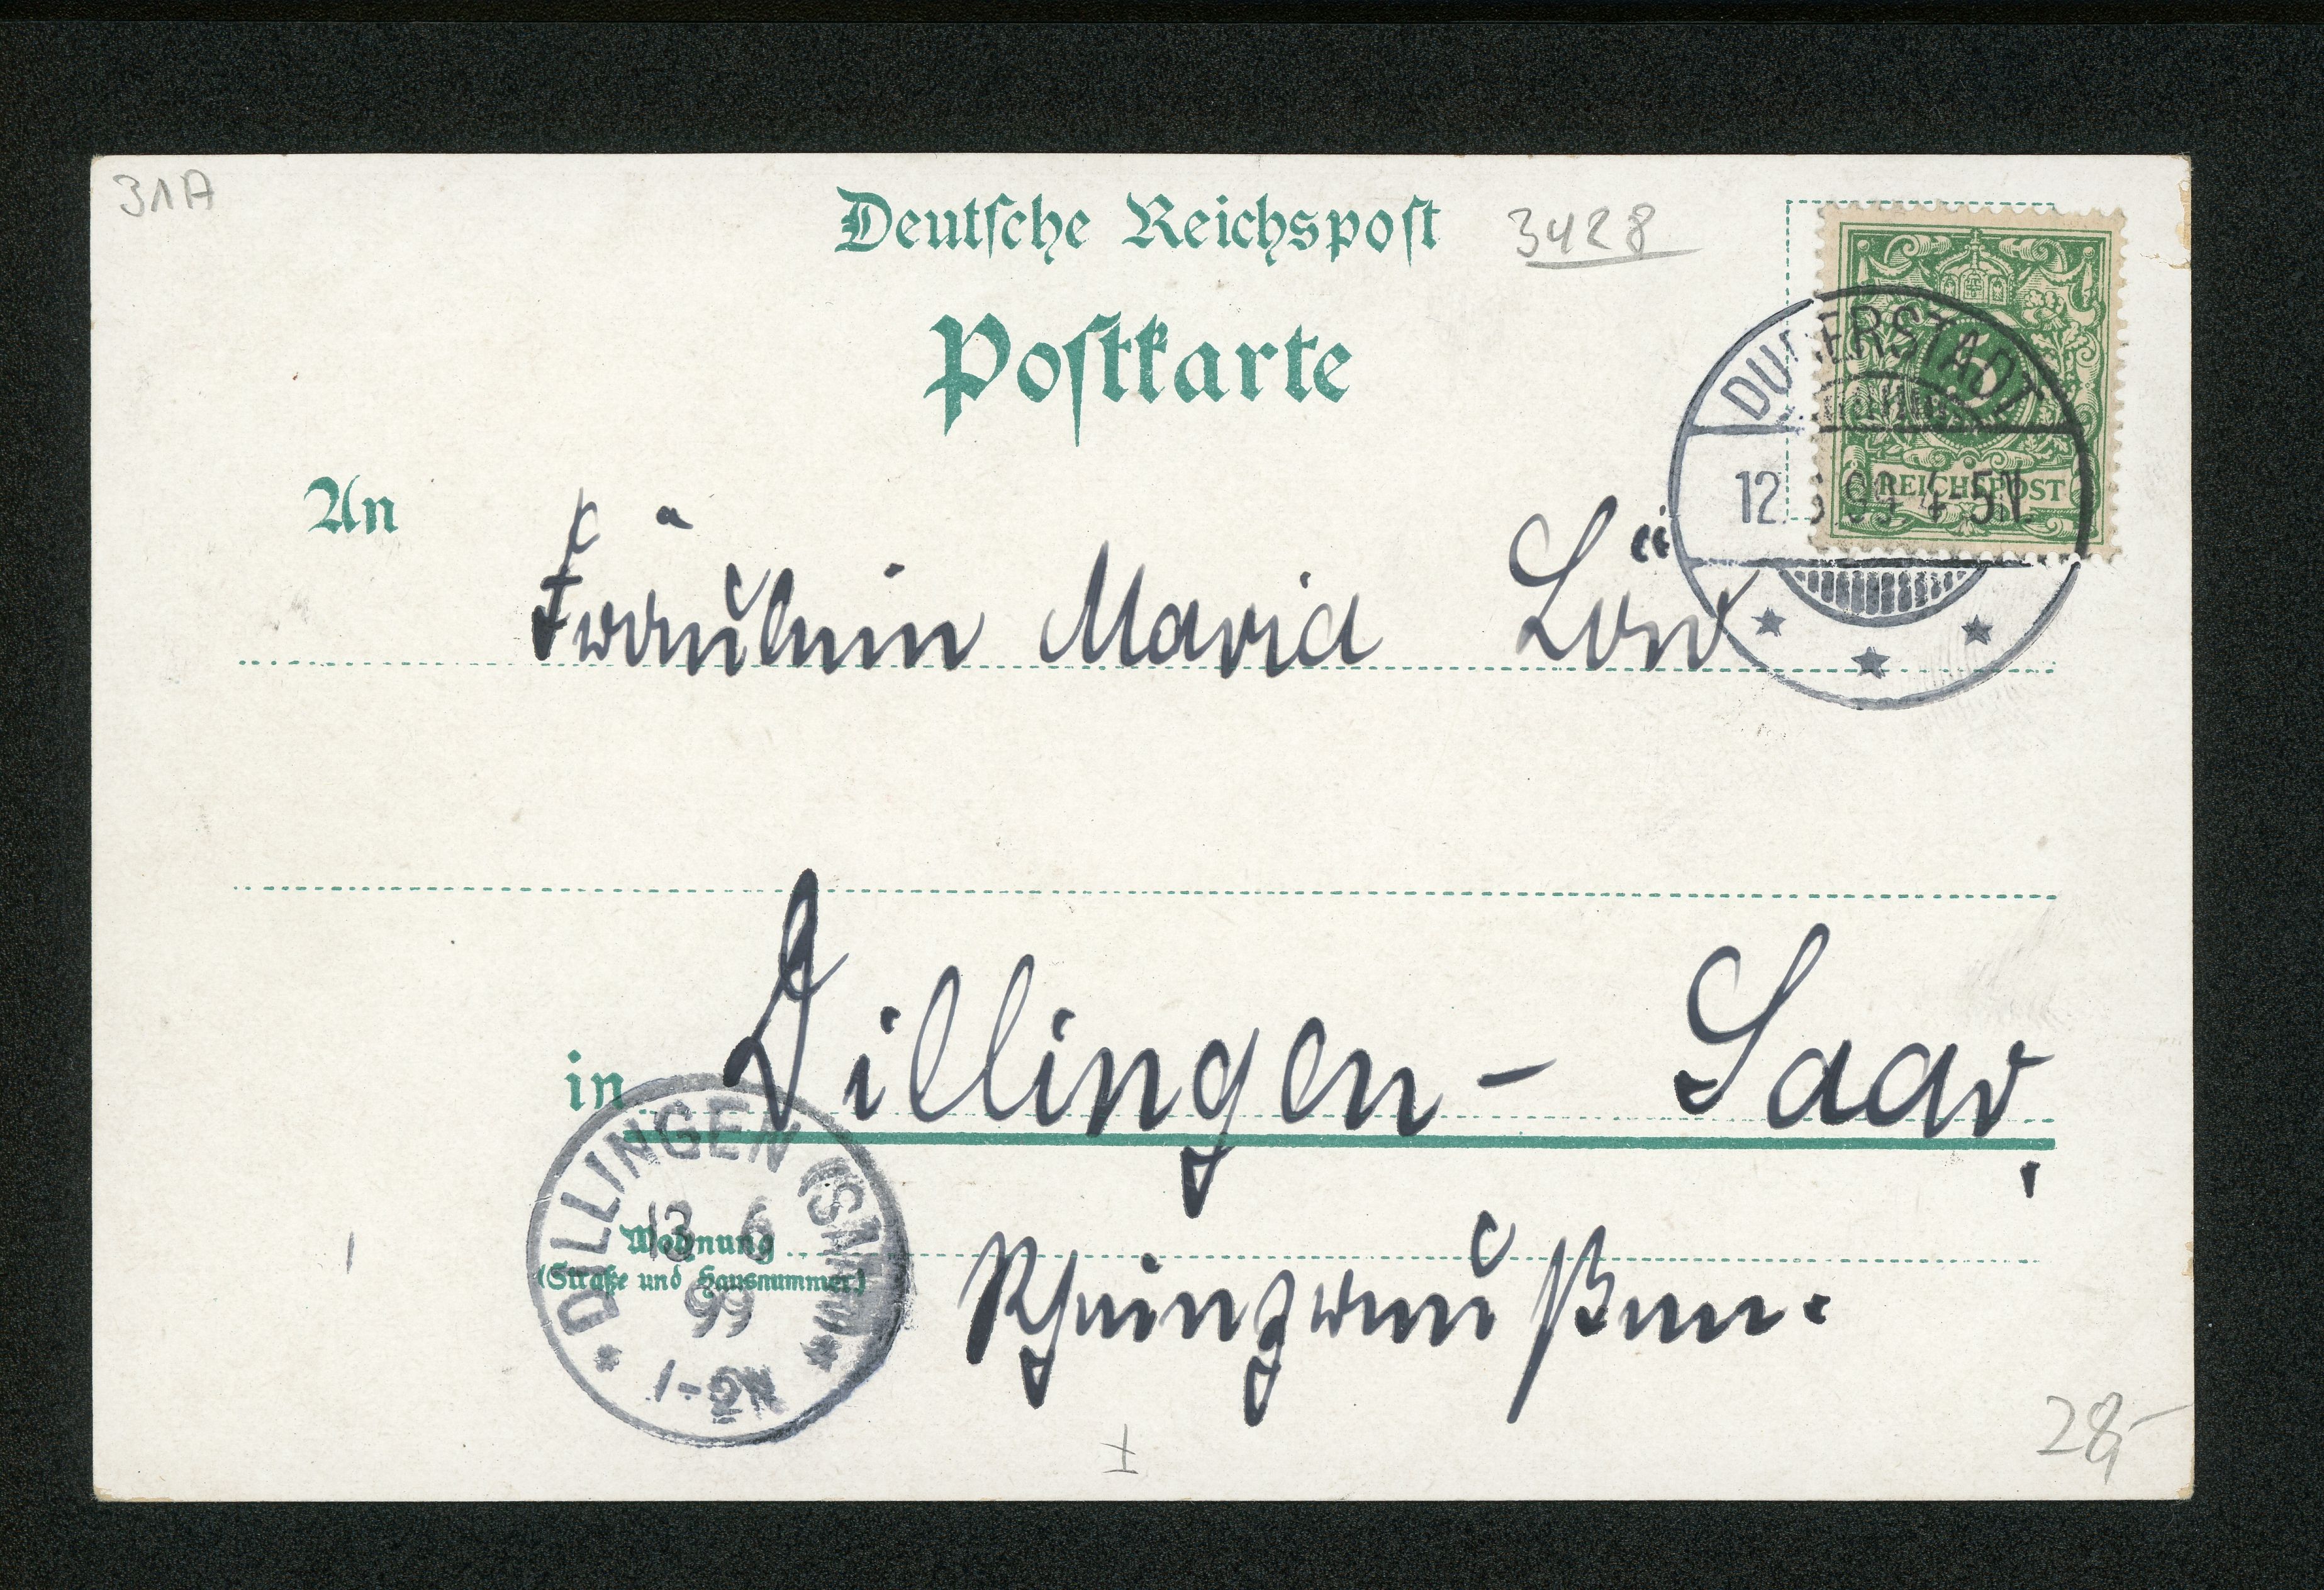 31A
Deutsche Reichspost 3428
Postkarte
DUDERSTADT
12.6.99 4-5N.
REICHSPOST
An Fräulein Maria Löw
in Dillingen - Saar
Rheinpreußen.
Wohnung
(Straße und Hausnummer)
DILLINGEN (SAAR)
13 6
99
1-2N
28,-